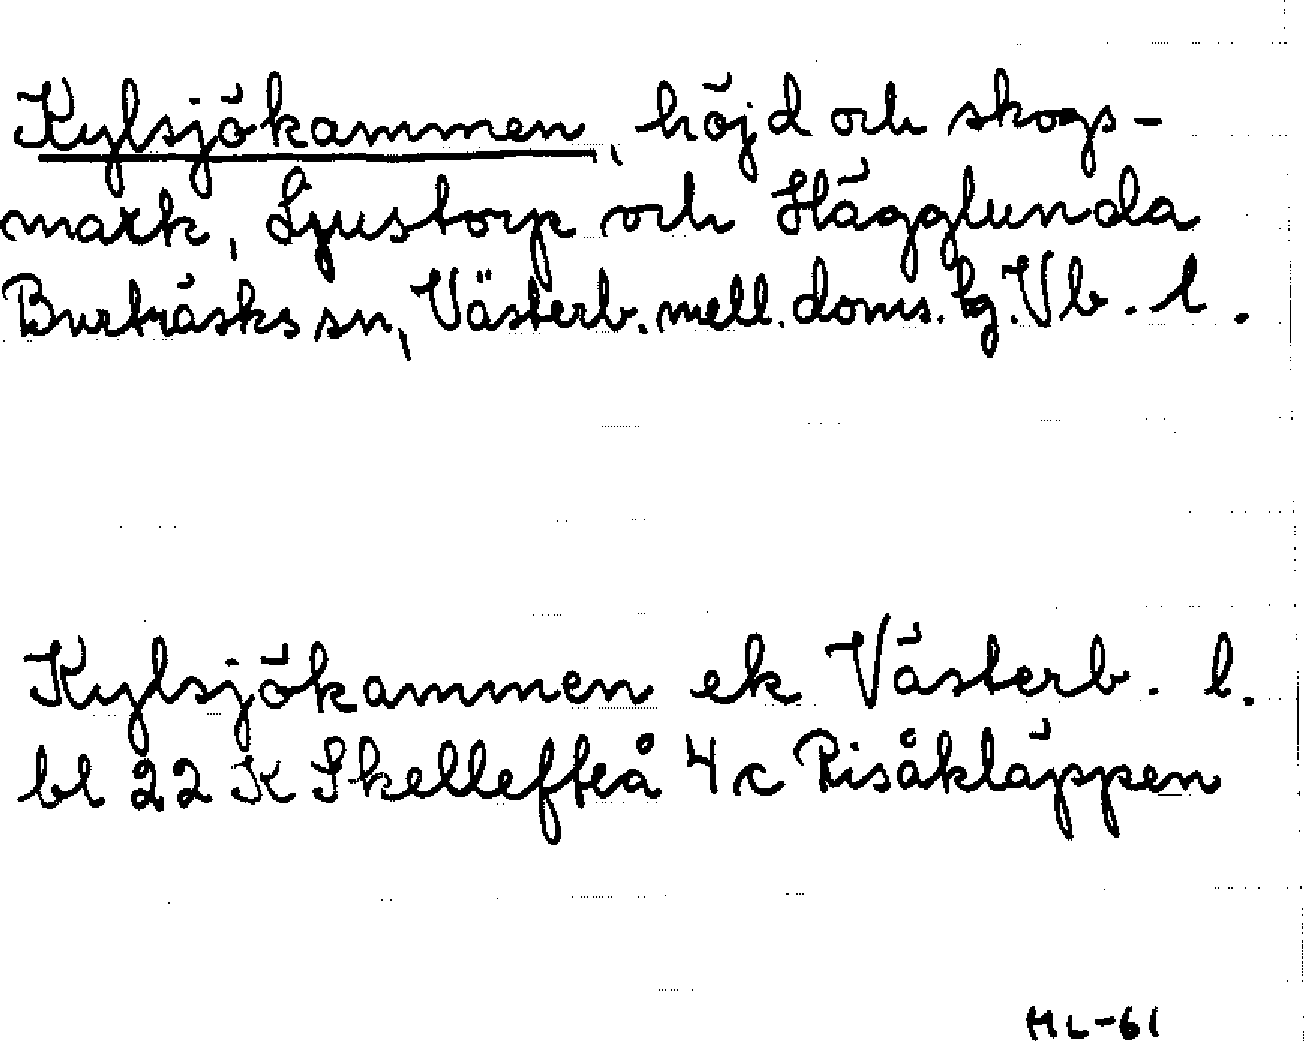 Kylsjökammen, höjd och skogs-
mark, Ljustorp och Hägglunda
Burträsks sn, Västerb. mell. doms. hg. Vb. l.
Kylsjökammen ek Västerb. l.
bl 22 K Skellefteå 4 c Risåkläppen
HL-61